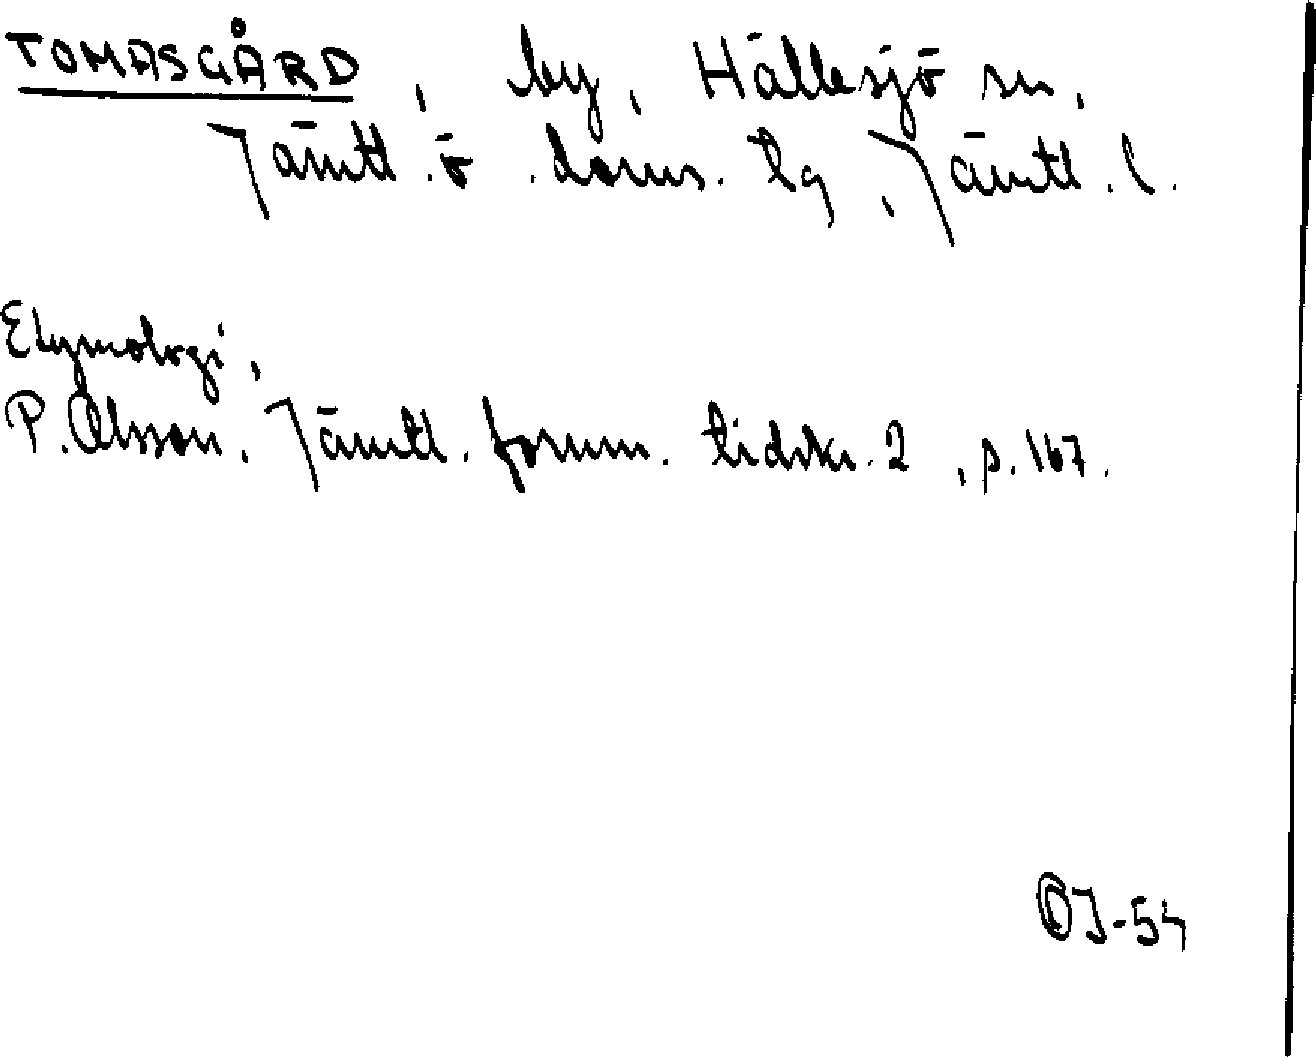 TOMASGÅRD, by, Hällesjö sn,
Jämtl. ö. doms. tg, Jämtl. l.
Etymologi,
P. Olsson, Jämtl. fornm. tidskr. 2, p. 167.
OJ-54